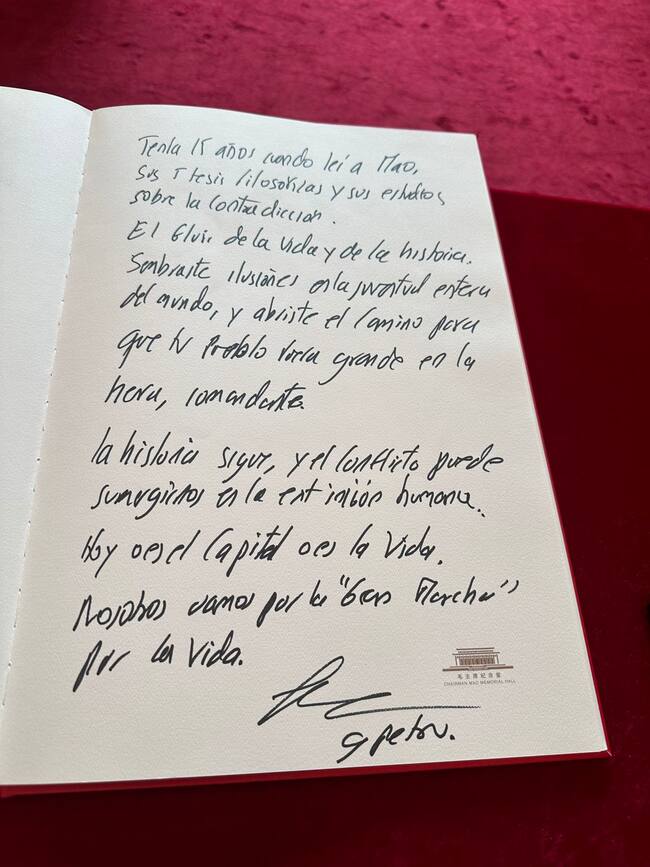 Tenía 15 años cuando leí a Mao,
Sus Thesis filosoficas y sus estudios
sobre la Contradiccion.
El fluir de la vida y de la historia.
Sembraste ilusiones en la juventud entera
del mundo, y abriste el camino para
que tu Pueblo fuera grande en la
tierra, comandante.
la historia sigue, y el Conflicto puede
sumergirnos en la extinción humana.
Hoy o es el Capital o es la Vida.
Nosotros vamos por la "Gran Marcha"
por la Vida.
G Petro.
毛主席纪念堂
CHAIRMAN MAO MEMORIAL HALL